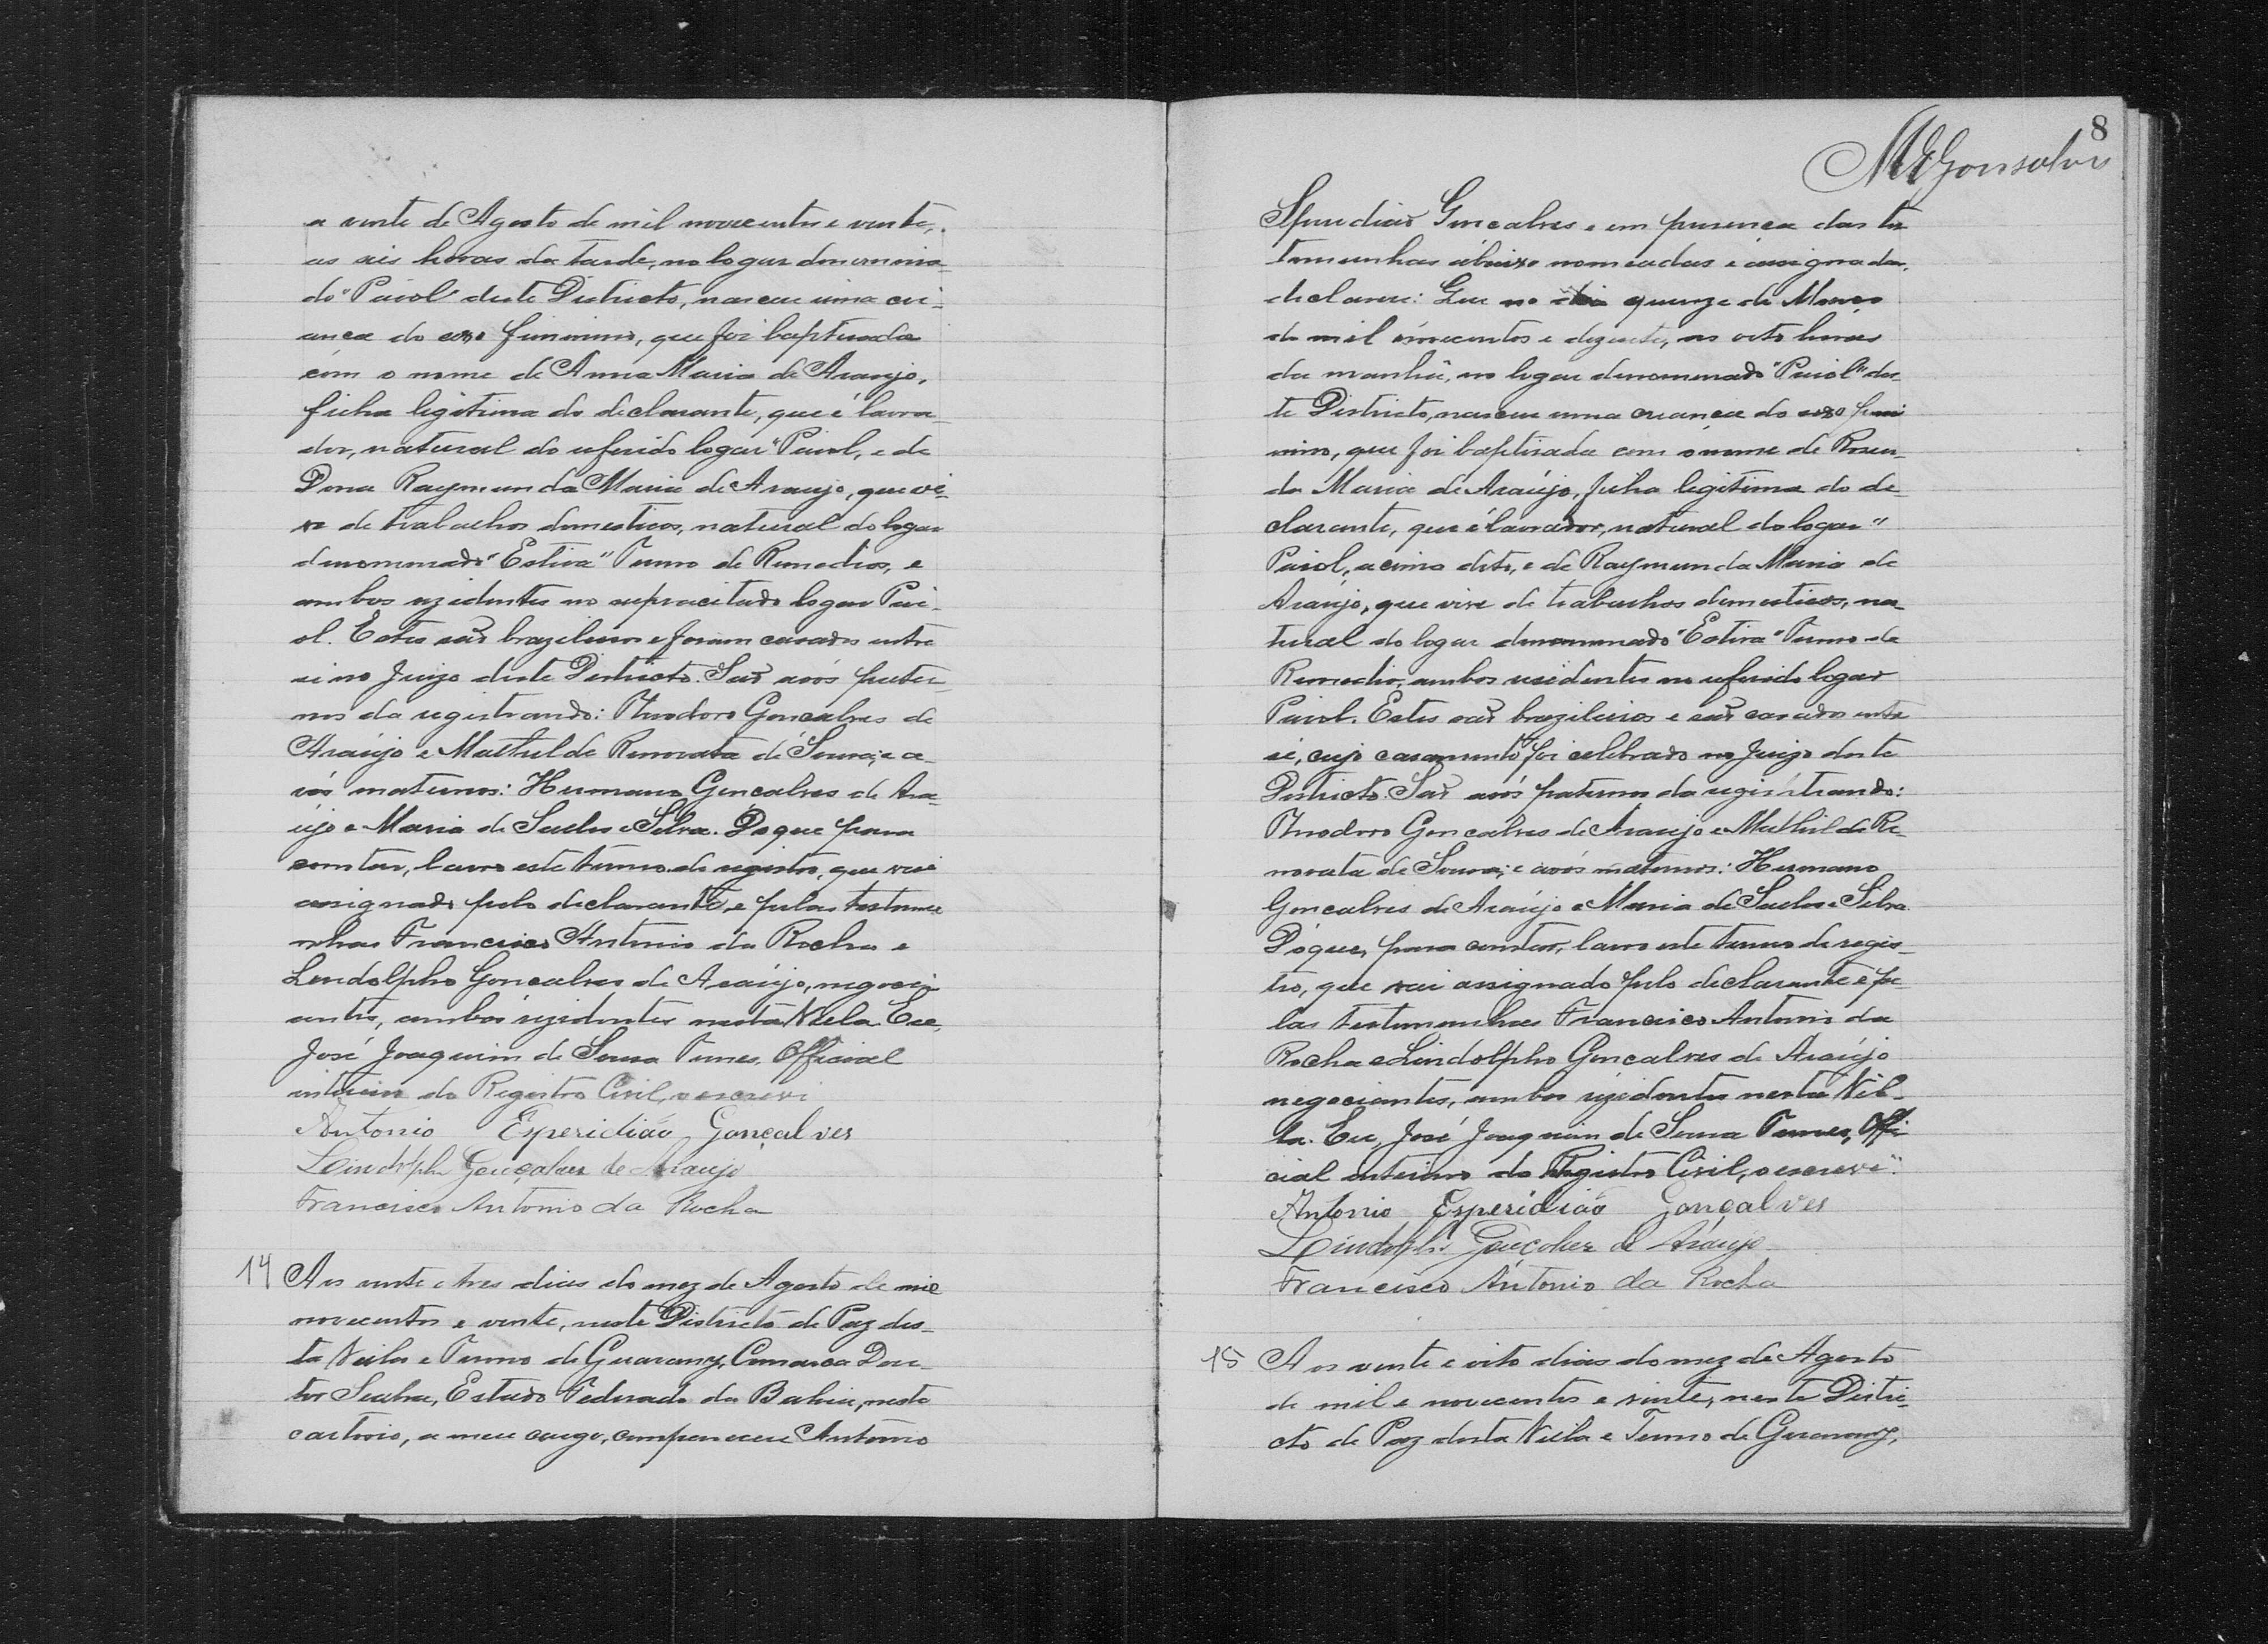 a vinte de Agosto de mil novecentos e vinte,
as seis horas da tarde, no logar denomina-
do "Paiol" deste Districto, nasceu uma cri-
ança do sexo feminino, que foi baptisada
com o nome de Anna Maria de Araujo,
filha legitima do declarante, que é lavra-
dor, natural do referido logar "Paiol, e de
Dona Raymunda Maria de Araujo, que vi-
ve de trabalhos domesticos, natural do logar
denominado "Estiva" Termo de Remedios, e
ambos rezidentes no supracitado logar Pai-
ol. Estes são brazileiros e foram casados entre
si no Juizo deste Districto. São avós pater-
nos da registrando: Theodoro Gonçalves de
Araújo e Mathilde Renovata de Souza; e a-
vós maternos: Hermano Gonçalves de Ara-
újo e Maria de Salles e Silva. Do que para
constar, lavro este termo de registro, que vai
assignado pelo declarante, e pelas testemu-
nhas Francisco Antonio da Rocha e
Lindolpho Gonçalves de Araújo, negoci-
antes, ambos rezidentes nesta Villa. Eu,
José Joaquim de Souza Tunes, Official
interino do Registro Civil, o escrevi
Antonio Esperidião Gonçalves
Lindolpho Gonçalves de Araujo
Francisco Antonio da Rocha
14 Aos vinte e tres dias do mez de Agosto de mil
novecentos e vinte, neste Districto de Paz des-
ta Villa e Termo de Guarany, Comarca Dou-
tor Seabra, Estado Federado da Bahia, neste
cartorio, a meu cargo, compareceu Antonio
8
M E Gonsalves
Speridião Gonçalves e em presença das tes
temunhas abaixo nomeadas e assignadas,
declarou: Que no dia quinze de Março
de mil novecentos e dezesete, as oito horas
da manhã, no logar denominado "Paiol" des-
te Districto, nasceu uma criança do sexo femi
nino, que foi baptisada com o nome de Rosen-
da Maria de Araújo, filha legitima do de-
clarante, que é lavrador, natural do logar "
Paiol, acima dito, e de Raymunda Maria de
Araújo, que vive de trabalhos domesticos, na-
tural do logar denominado "Estiva" Termo de
Remedios, ambos residentes no referido logar
Paiol. Estes são brazileiros e são casados entre
si, cujo casamento foi celebrado no Juizo deste
Districto. São avós paternos da registrando:
Theodoro Gonçalves de Araujo e Mathilde Re-
novata de Souza; e avós maternos: Hermano
Gonçalves de Araújo e Maria de Salles e Silva.
Do que, para constar, lavro este termo de regis-
tro, que vai assignado pelo declarante e pe-
las testemunhas Francisco Antonio da
Rocha e Lindolpho Gonçalves de Araújo
negociantes, ambos rezidentes nesta Vil-
la. Eu, José Joaquim de Souza Tunes, Offi
cial interino do Registro Civil, o escrevi.
Antonio Esperidião Gonçalves
Lindolpho Gonçalves de Araujo
Francisco Antonio da Rocha
15 Aos vinte e oito dias do mez de Agosto
de mil e novecentos e vinte, neste Distri-
cto de Paz desta Villa e Termo de Guarany,